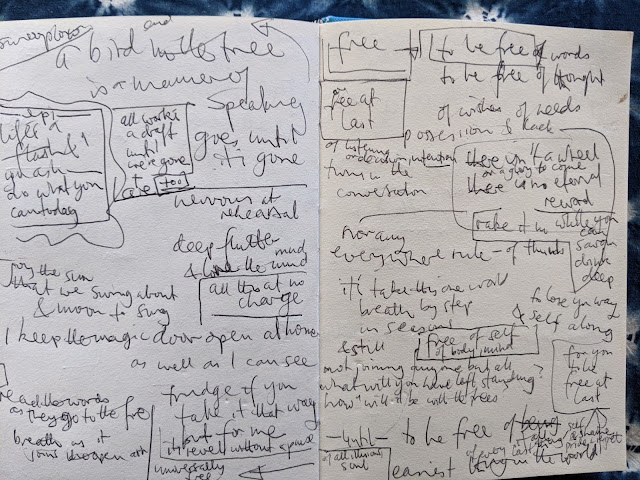 and
a bird in the tree
is a manner of
speaking
goes until
it's gone
life's a
flash &
an ash
do what you
can today
all work's
a draft
until
we're gone
too
nervous at
rehearsal
deep flutter
mud
& the mind
all this at no
charge
for the sun
that we swing about
& moon to swing
I keep the magic door open at home
as well as I can see
read the words
as they go to the
breath as it
joins the open air
fudge if you
take it that way
but for me
it's revel without a pause
universally
free
free → to be free of words
to be free of thought
free at
last
of wishes of needs
possession & lack
of listening
ordering intention
turns in the
conversation
there isn't a wheel
or a glory to come
there is no eternal
reward
take it in while you
can
savour
drink
deep
nor any
everywhere rule – of thumbs
it's take this one world
breath by step
in seasons
to lose your way
& self along
& still
free of self
of body, mind
not joining anyone but all
what will you have left standing?
how will it be with the trees
for you
to be
free at
last
– until – to be free of being
of all illusion,
soul
easiest being in the world